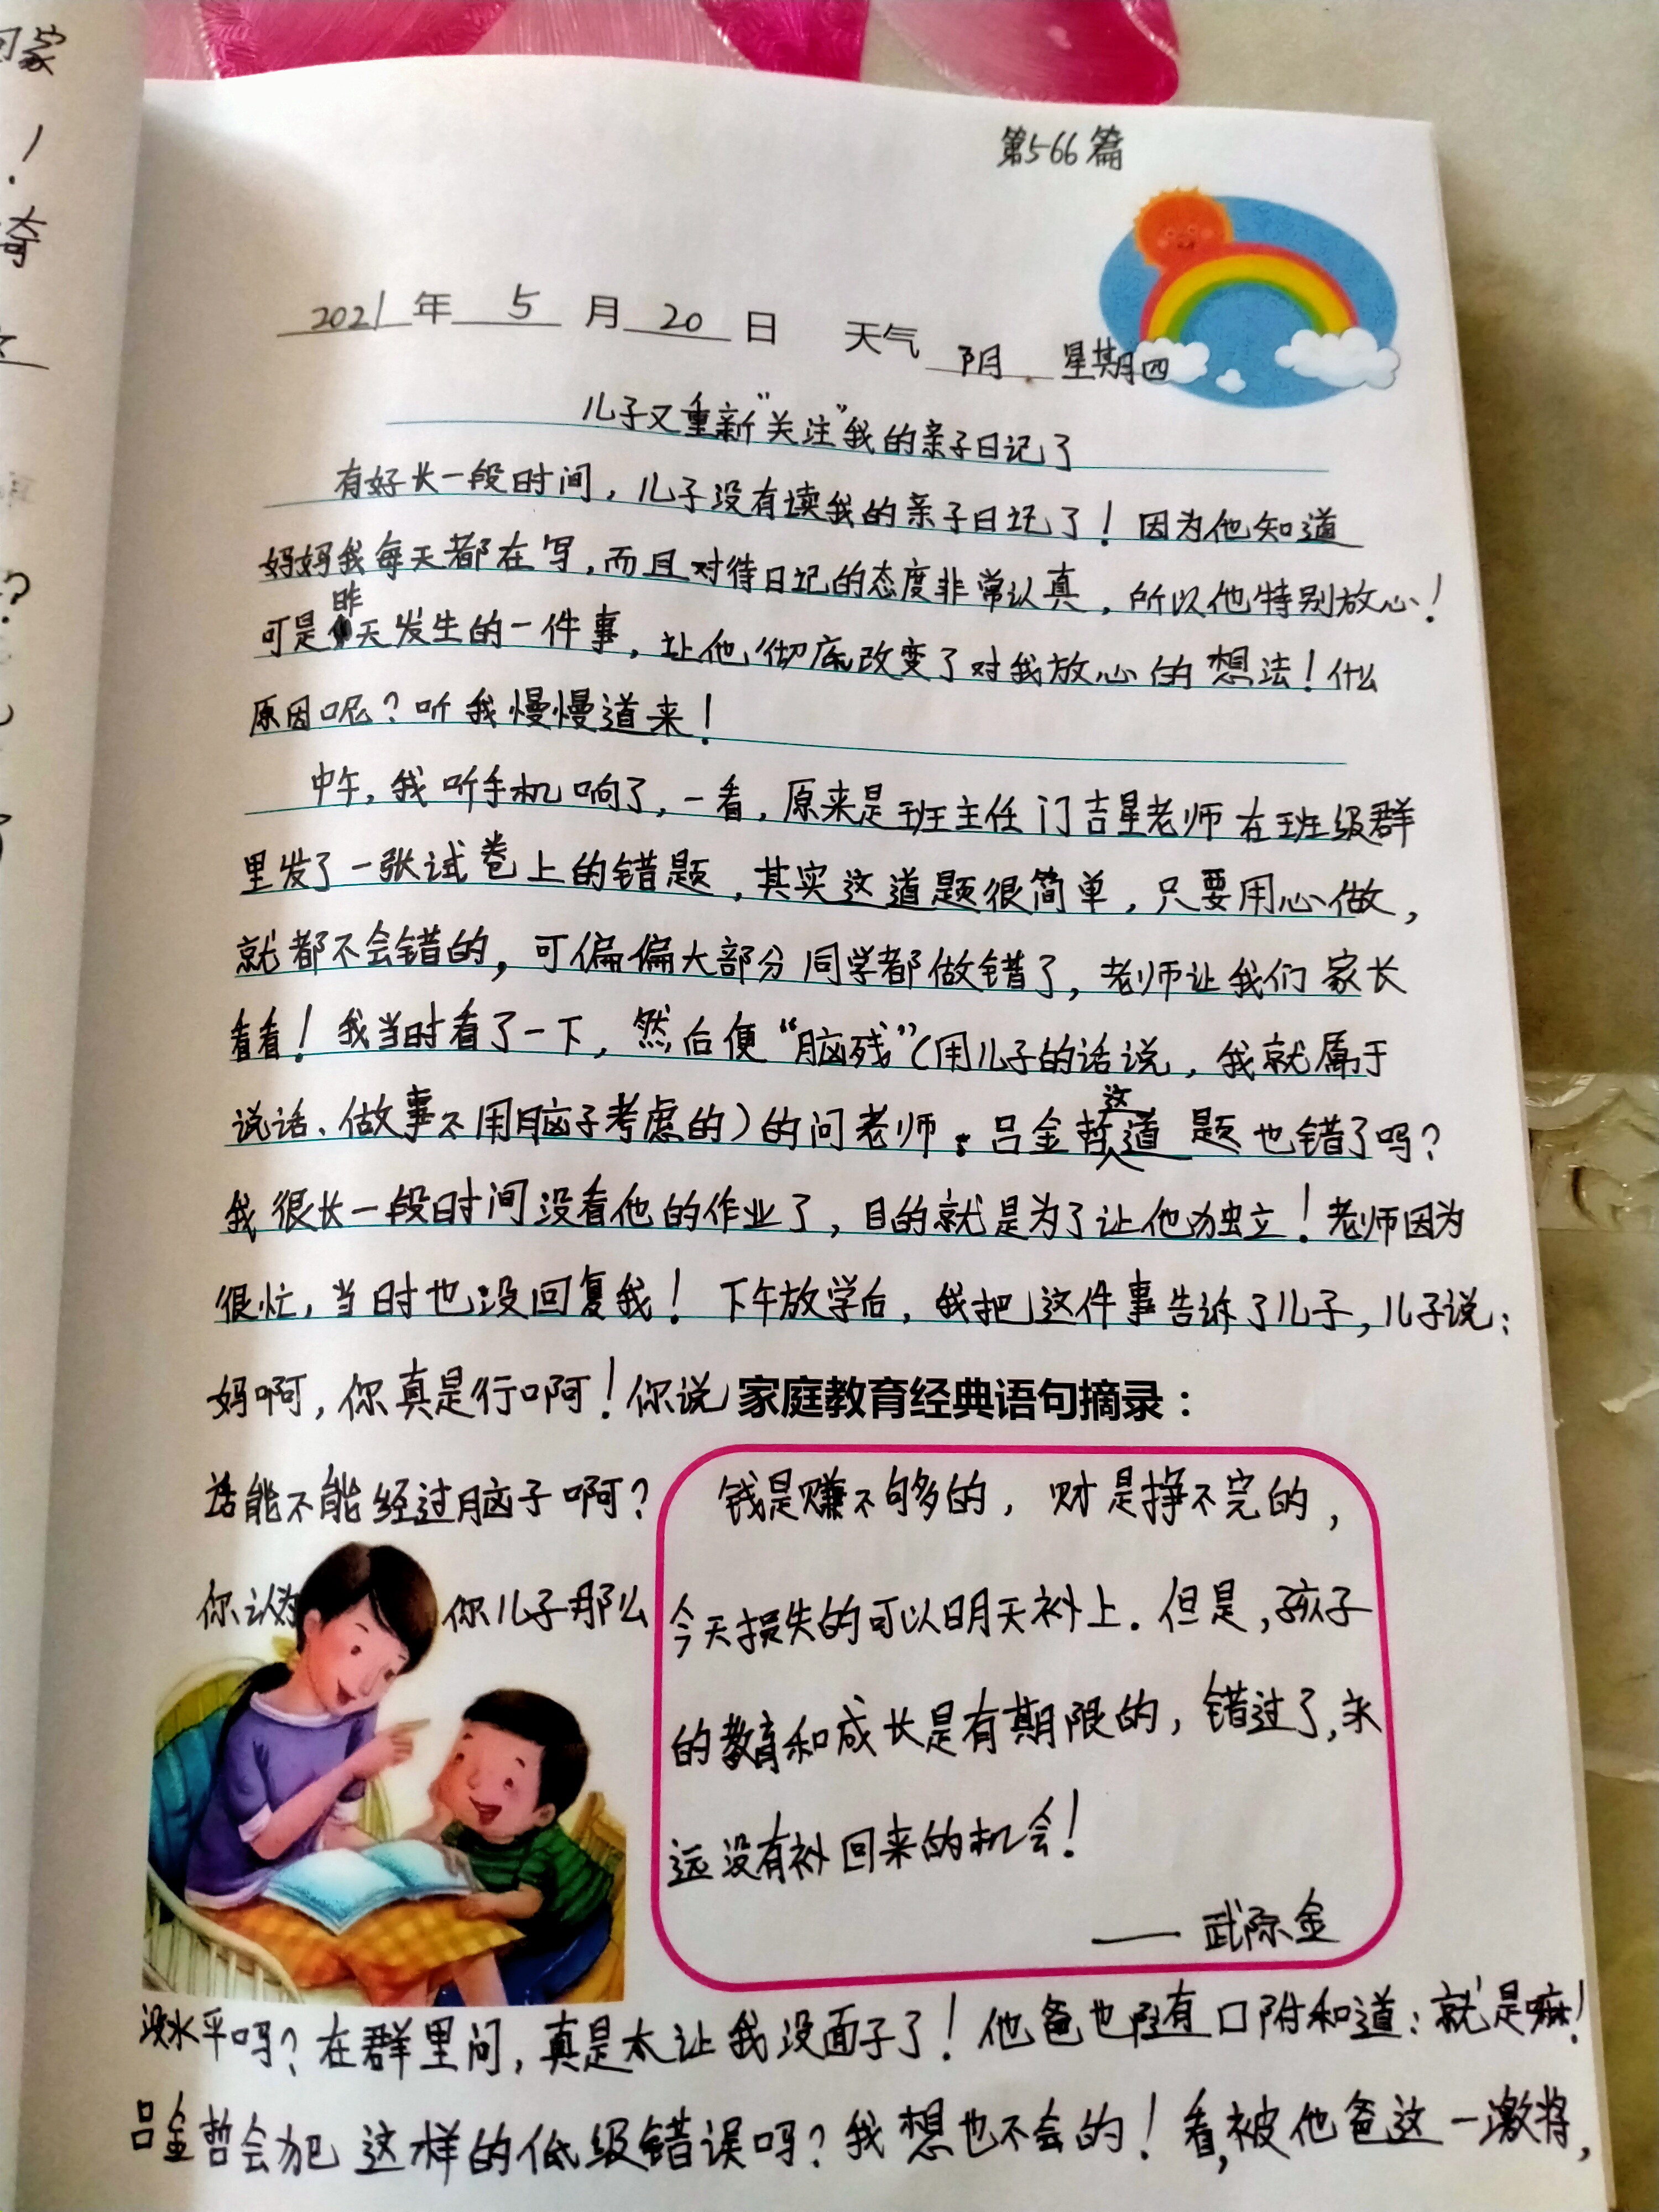 第566篇
2021年 5 月 20 日 天气 阴 星期四
儿子又重新"关注"我的亲子日记了
有好长一段时间，儿子没有读我的亲子日记了！因为他知道
妈妈我每天都在写，而且对待日记的态度非常认真，所以他特别放心！
可是昨天发生的一件事，让他彻底改变了对我放心的想法！什么
原因呢？听我慢慢道来！
中午，我听手机响了，一看，原来是班主任门吉星老师在班级群
里发了一张试卷上的错题，其实这道题很简单，只要用心做，
就都不会错的，可偏偏大部分同学都做错了，老师让我们家长
看看！我当时看了一下，然后便“脑残”（用儿子的话说，我就属于
说话、做事不用脑子考虑的）的问老师：吕金哲这道题也错了吗？
我很长一段时间没看他的作业了，目的就是为了让他独立！老师因为
很忙，当时也没回复我！下午放学后，我把这件事告诉了儿子，儿子说：
妈啊，你真是行啊！你说
话能不能经过脑子啊？
你认为你儿子那么
家庭教育经典语句摘录：
钱是赚不够多的，财是挣不完的，
今天损失的可以明天补上．但是，孩子
的教育和成长是有期限的，错过了，永
远没有补回来的机会！
—— 武际金
没水平吗？在群里问，真是太让我没面子了！他爸也随有口附和道：就是嘛！
吕金哲会犯这样的低级错误吗？我想也不会的！看，被他爸这一激将，
回家
！
奇
？